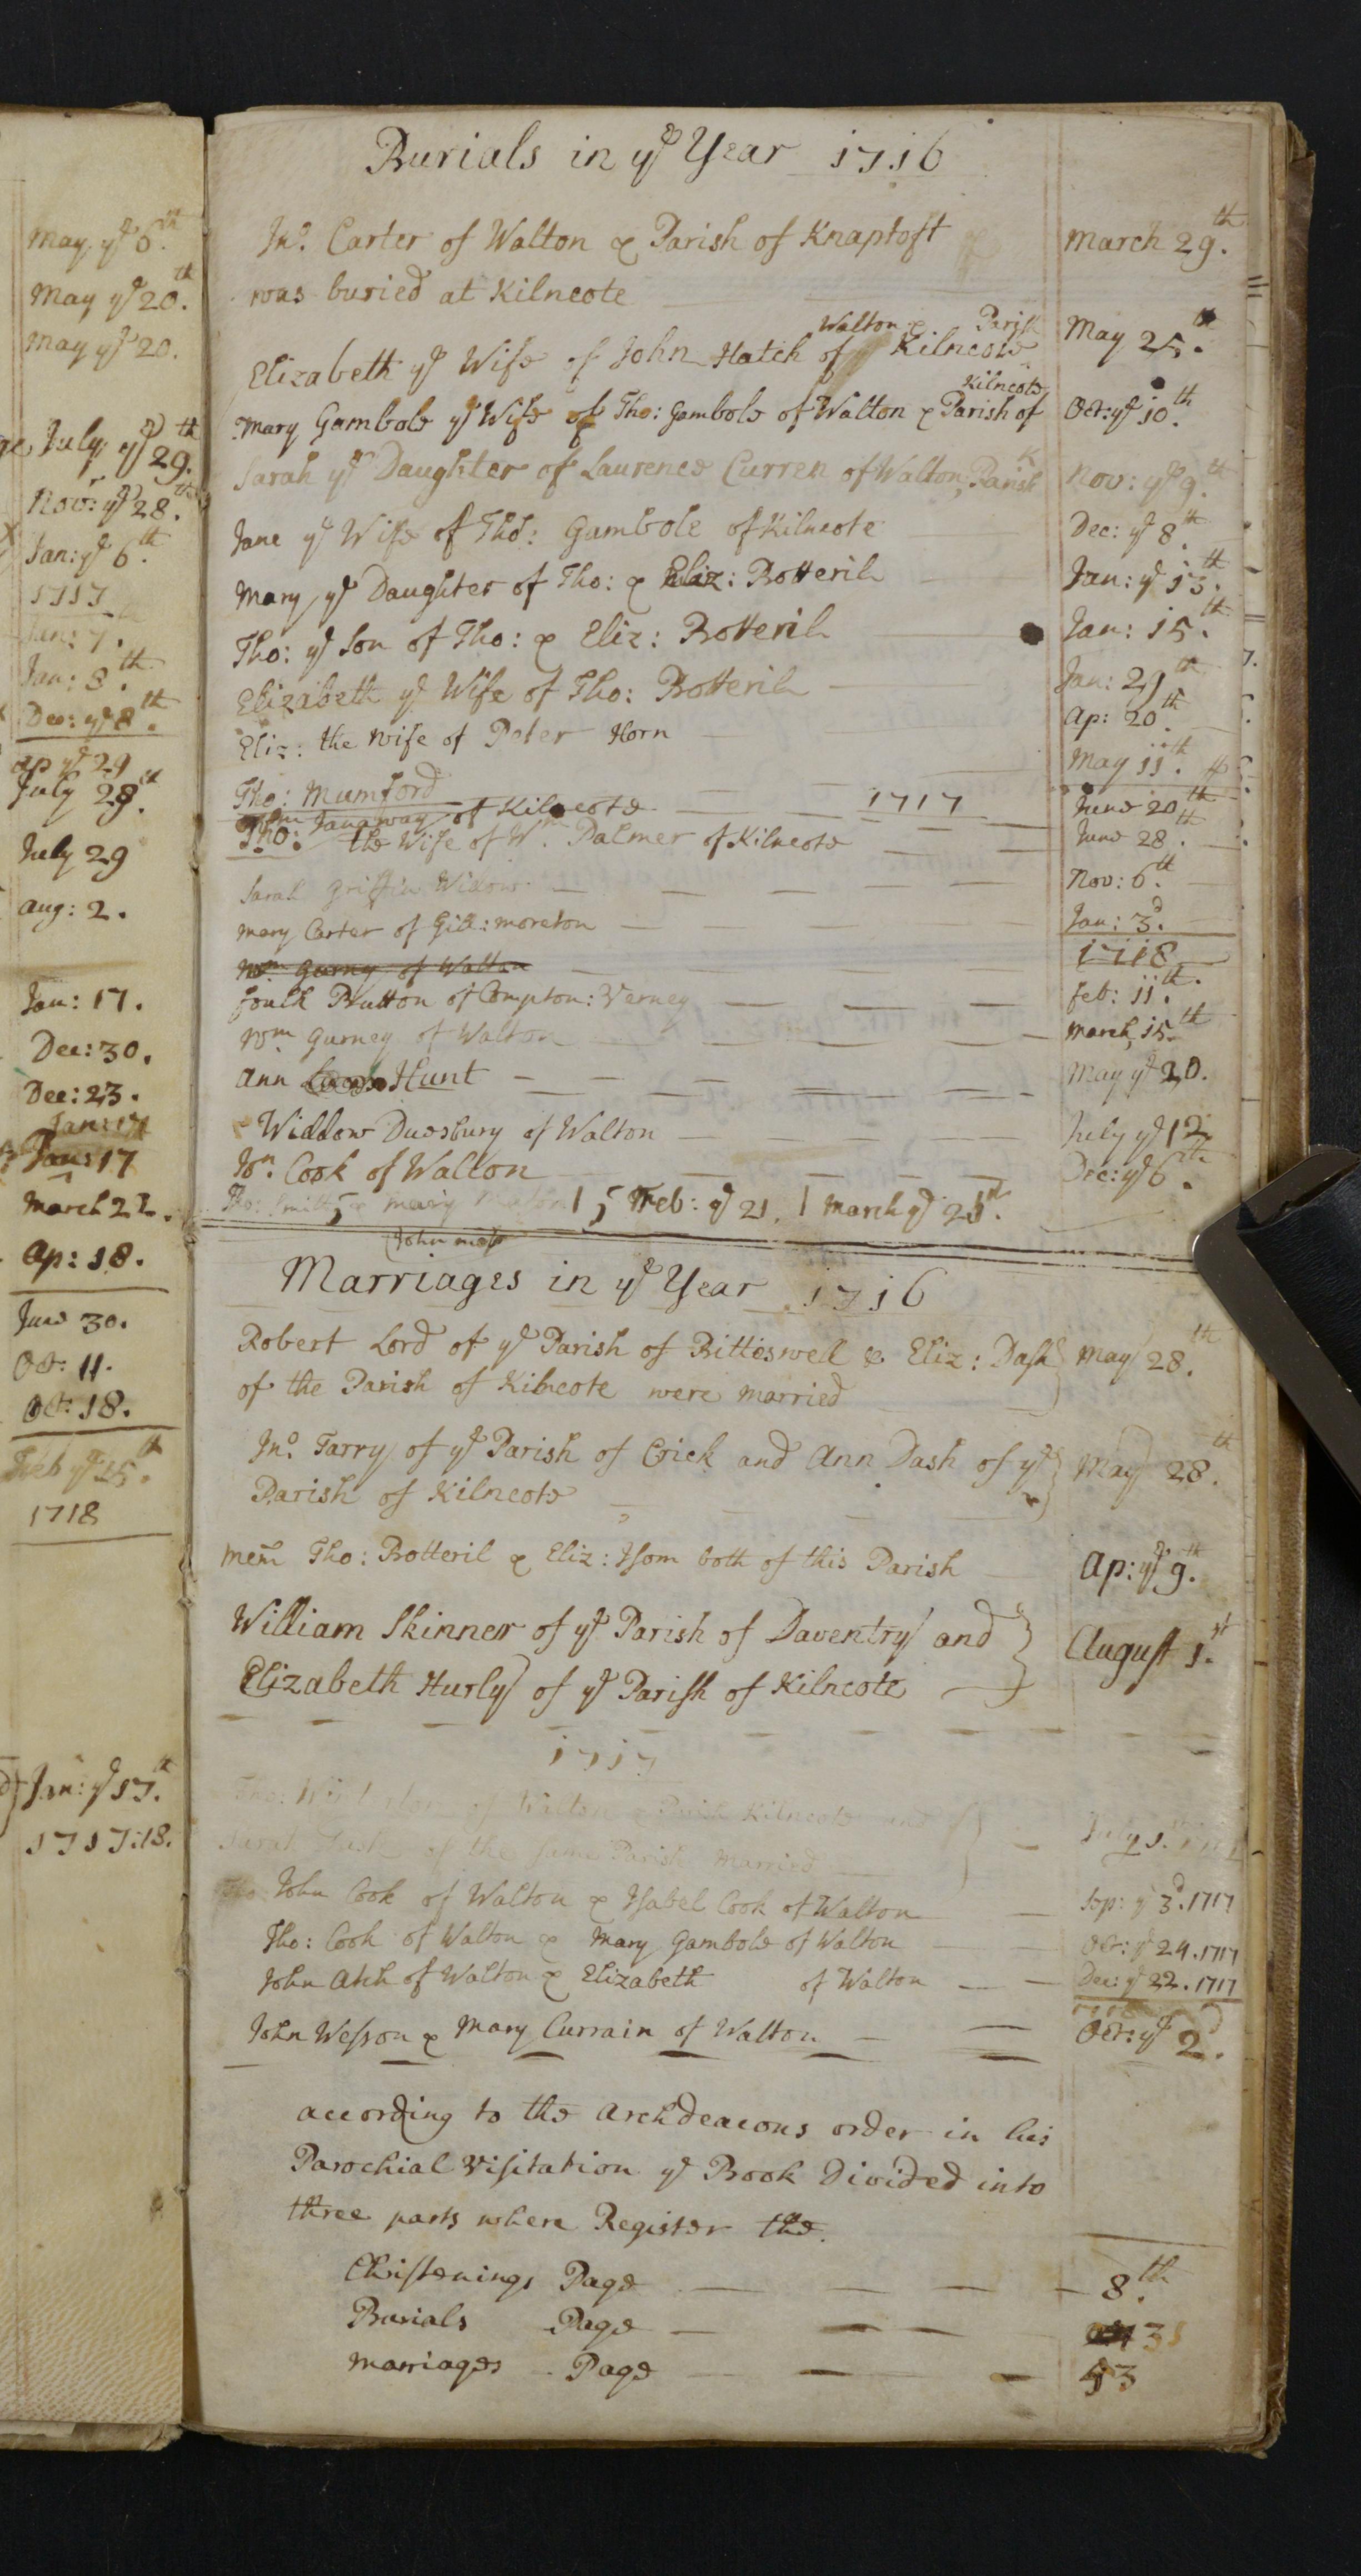 May ye 6th
May ye 20th
May ye 20.
July ye 29th
Nov: ye 28th
Jan: ye 6th
1717
Jan: 7.
Jan: 8th
Dec: ye 8th
ap ye 29
July 28th
July 29
Aug: 2.
Jan: 17.
Dec: 30.
Dec: 23.
Jan: 17
Jan: 17
March 22.
Ap: 18.
June 30.
Oct: 11.
Oct: 18.
Feb ye 25th
1718
Jan: ye 17th
1717:18.
Burials in ye Year 1716
Jno. Carter of Walton & Parish of Knaptoft March 29th
was buried at Kilncote
Walton & Parish
Elizabeth ye Wife of John Hatch of Kilncote May 25th
Kilncote
Mary Gambole ye Wife of Tho: Gambole of Walton & Parish of Oct: ye 10th
Sarah ye Daughter of Laurence Curren of Walton, Parish Nov: ye 9th
Jane ye Wife of Tho: Gambole of Kilncote Dec: ye 8th
Mary ye Daughter of Tho: & Eliz: Botteril Jan: ye 13th
Tho: ye Son of Tho: & Eliz: Botteril Jan: 15th
Elizabeth ye Wife of Tho: Botteril Jan: 29th
Eliz: the wife of Peter Horn Ap: 20th
Tho: Mumford May 11th
Janaway of Kilncote 1717 June 20th
Tho: the Wife of Wm. Palmer of Kilncote June 28th
Sarah Griffin Widow Nov: 6th
Mary Carter of Gill: moreton Jan: 3d
Wm Gurney of Walton 1718
Foulk Brutton of Compton: Verney Feb: 11th
Wm Gurney of Walton March 15th
Ann Hunt May ye 20.
Widdow Duesbury of Walton July ye 12
Jon. Cook of Walton Dec: ye 6th
Tho: Smith & Mary Feb: ye 21. March ye 21st
John
Marriages in ye Year 1716
Robert Lord of ye Parish of Bitteswell & Eliz: Dash May 28th
of the Parish of Kilncote were married
Jno. Tarry of ye Parish of Crick and Ann Dash of ye May 28th
Parish of Kilncote
mem Tho: Botteril & Eliz: Isom both of this Parish Ap: ye 9th
William Skinner of ye Parish of Daventry and August 1st
Elizabeth Hurly of ye Parish of Kilncote
1717
Tho: of Walton & Parish Kilncote and July 1.
Sarah Dash of the same Parish married
John Cook of Walton & Isabel Cook of Walton Sep: ye 3d. 1717
Tho: Cook of Walton & Mary Gambole of Walton Oct: ye 24. 1717
John Atch of Walton & Elizabeth of Walton Dec: ye 22. 1717
John Wesson & Mary Currain of Walton Oct: ye 2d
according to the Archdeacons order in his
Parochial Visitation ye Book divided into
three parts where Register the
Christenings Page 8th
Burials Page 31
Marriages Page 53